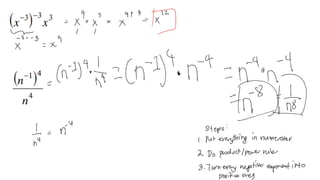 (x⁻³)⁻³x³ = x⁹ · x³ = x⁹⁺³ = x¹²
x⁻³·⁻³ = x⁹
(n⁻¹)⁴/n⁴ = (n⁻¹)⁴ · 1/n⁴ = (n⁻¹)⁴ · n⁻⁴ = n⁻⁴ · n⁻⁴
= n⁻⁸ = 1/n⁸
1/n⁴ = n⁻⁴
Steps:
1. Put everything in numerator
2. Do product/power rule
3. Turn any negative exponent into
positive ones